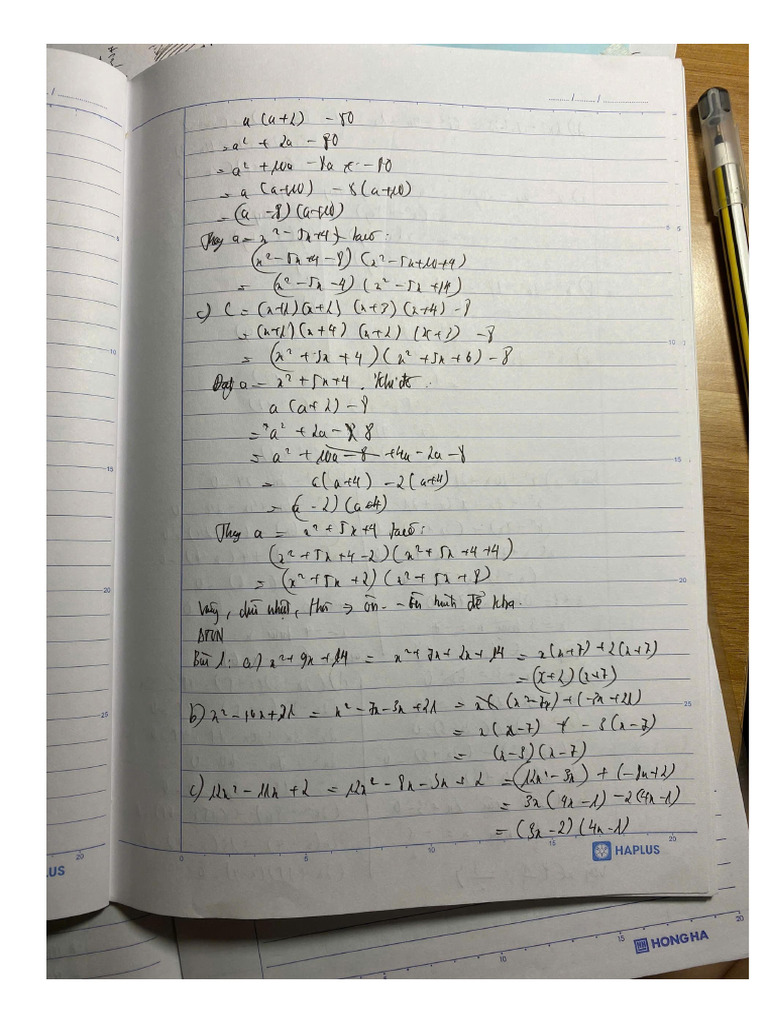 a(a+2) - 80
= a² + 2a - 80
= a² + 10a - 8a - 80
= a(a+10) - 8(a+10)
= (a - 8)(a+10)
Thay a = x² - 5x + 4, ta có:
(x² - 5x + 4 - 8)(x² - 5x + 10 + 4)
= (x² - 5x - 4)(x² - 5x + 14)
c) C = (x+1)(x+2)(x+3)(x+4) - 8
= (x+1)(x+4)(x+2)(x+3) - 8
= (x² + 5x + 4)(x² + 5x + 6) - 8
Đặt a = x² + 5x + 4. Khi đó:
a(a+2) - 8
= a² + 2a - 8
= a² + 4a - 2a - 8
= a(a+4) - 2(a+4)
= (a - 2)(a+4)
Thay a = x² + 5x + 4 ta có:
(x² + 5x + 4 - 2)(x² + 5x + 4 + 4)
= (x² + 5x + 2)(x² + 5x + 8)
chủ nhật, ôn
BTVN
Bài 1: a) x² + 9x + 14 = x² + 7x + 2x + 14 = x(x+7) + 2(x+7)
= (x+2)(x+7)
b) x² - 10x + 21 = x² - 7x - 3x + 21 = (x² - 7x) + (-3x + 21)
= x(x-7) - 3(x-7)
= (x-3)(x-7)
c) 12x² - 11x + 2 = 12x² - 8x - 3x + 2 = (12x² - 3x) + (-8x + 2)
= 3x(4x - 1) - 2(4x - 1)
= (3x - 2)(4x - 1)
HAPLUS
LUS
HONG HA